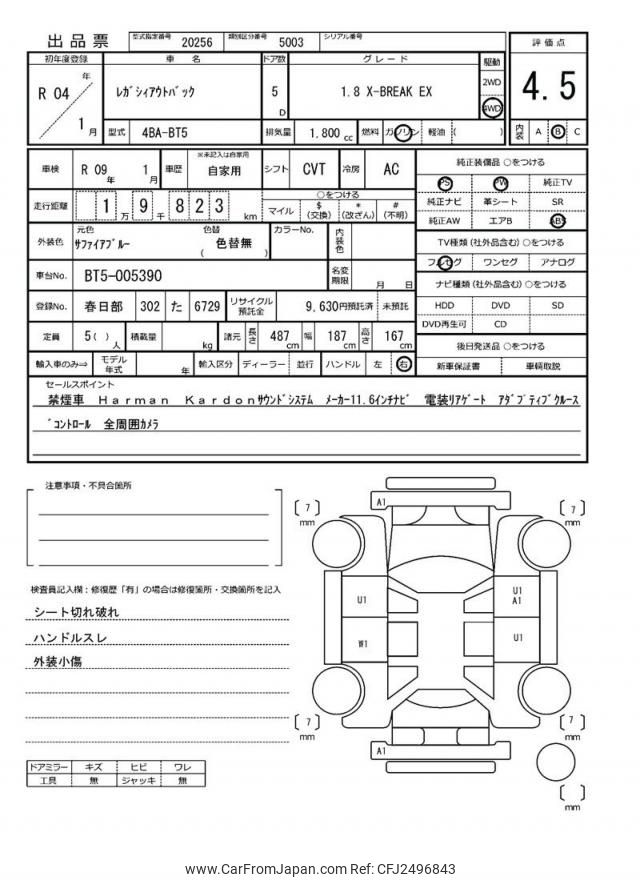 出品票 型式指定番号 20256 類別区分番号 5003 シリアル番号
初年度登録 車 名 ドア数 グレード 駆動 評価点
R 04 年 1 月 ﾚｶﾞｼｨｱｳﾄﾊﾞｯｸ 5 D 1.8 X-BREAK EX 2WD 4WD 4.5
型式 4BA-BT5 排気量 1.800 cc 燃料 ガソリン 軽油 ( ) 内装 A B C
車検 R 09 年 1 月 車歴 ※未記入は自家用 自家用 シフト CVT 冷房 AC
走行距離 1 万 9 千 8 2 3 km ○をつける マイル $ (交換) * (改ざん) # (不明)
外装色 元色 ｻﾌｧｲｱﾌﾞﾙｰ 色替 ( 色替無 ) カラーNo. 内装色
車台No. BT5-005390 名変期限 月 日
登録No. 春日部 302 た 6729 リサイクル預託金 9,630円預託済 未預託
定員 5( ) 人 積載量 kg 諸元 長さ 487 cm 幅 187 cm 高さ 167 cm
輸入車のみ⇒ モデル年式 年 輸入区分 ディーラー 並行 ハンドル 左 右
純正装備品 ○をつける
PS PW 純正TV
純正ナビ 革シート SR
純正AW エアB ABS
TV種類 (社外品含む) ○をつける
フルセグ ワンセグ アナログ
ナビ種類 (社外品含む) ○をつける
HDD DVD SD
DVD再生可 CD
後日発送品 ○をつける
新車保証書 車輌取説
セールスポイント
禁煙車 Ｈａｒｍａｎ Ｋａｒｄｏｎｻｳﾝﾄﾞｼｽﾃﾑ ﾒｰｶｰ11.6ｲﾝﾁﾅﾋﾞ 電装ﾘｱｹﾞｰﾄ ｱﾀﾞﾌﾟﾃｨﾌﾞｸﾙｰｽ
ﾞｺﾝﾄﾛｰﾙ 全周囲ｶﾒﾗ
注意事項・不具合箇所
検査員記入欄：修復歴「有」の場合は修復箇所・交換箇所を記入
シート切れ破れ
ハンドルスレ
外装小傷
ドアミラー キズ ヒビ ワレ
工具 無 ジャッキ 無
A1
[ 7 ] mm [ 7 ] mm
U1 U1 A1
W1 U1
[ 7 ] mm [ 7 ] mm
A1
[ ] mm
www.CarFromJapan.com Ref: CFJ2496843